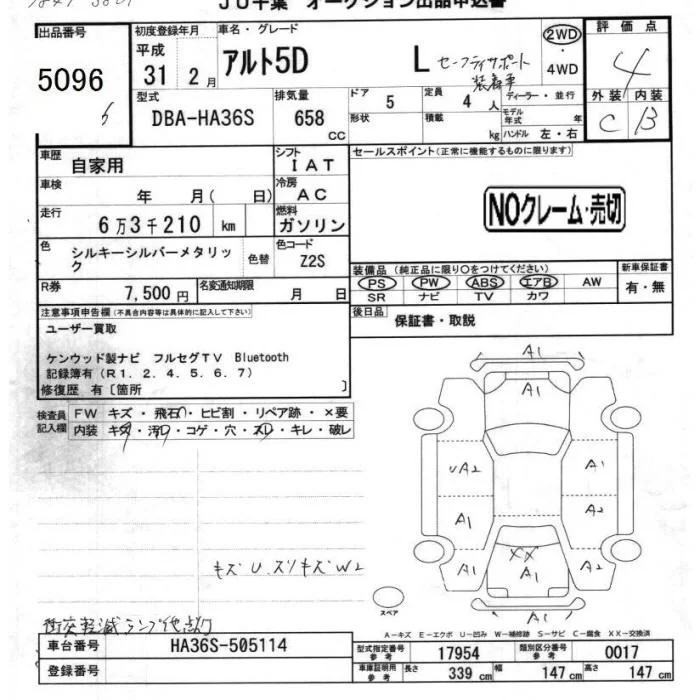 JU千葉 オークション出品申込書
出品番号
5096
初度登録年月
平成
31年 2月
車名・グレード
アルト5D L セーフティサポート
装着車
2WD
・
4WD
評価点
4
外装 内装
C B
型式
DBA-HA36S
排気量
658
CC
ドア
5
定員
4人
ディーラー・並行
形状
積載
kg
モデル
年式
年
ハンドル 左・右
車歴
自家用
シフト
IAT
車検
年 月( 日)
冷房
AC
走行
6万3千210 km
燃料
ガソリン
色
シルキーシルバーメタリッ
ク
色替
色コード
Z2S
R券
7,500円
名変通知期限
月 日
セールスポイント(正常に機能するものに限ります)
NOクレーム・売切
装備品 (純正品に限り○をつけてください)
PS PW ABS エアB AW
SR ナビ TV カワ
新車保証書
有・無
後日品
保証書・取説
注意事項申告欄(不具合内容等は具体的に記入して下さい)
ユーザー買取
ケンウッド製ナビ フルセグTV Bluetooth
記録簿有(R1.2.4.5.6.7)
修復歴 有〔箇所 〕
検査員
記入欄
FW キズ・飛石・ヒビ割・リペア跡・×要
内装 キズ・汚れ・コゲ・穴・スレ・キレ・破レ
キズ U.スリキズ W2
衝突軽減ランプ他点灯
A1
A1
UA2
A1
A1
A2
A1
XX
A1
A1
A1
スペア
A－キズ E－エクボ U－凹み W－補修跡 S－サビ C－腐食 XX－交換済
車台番号
HA36S-505114
登録番号
型式指定番号
参考
17954
類別区分番号
参考
0017
車庫証明用
参考
長さ
339 cm
幅
147 cm
高さ
147 cm